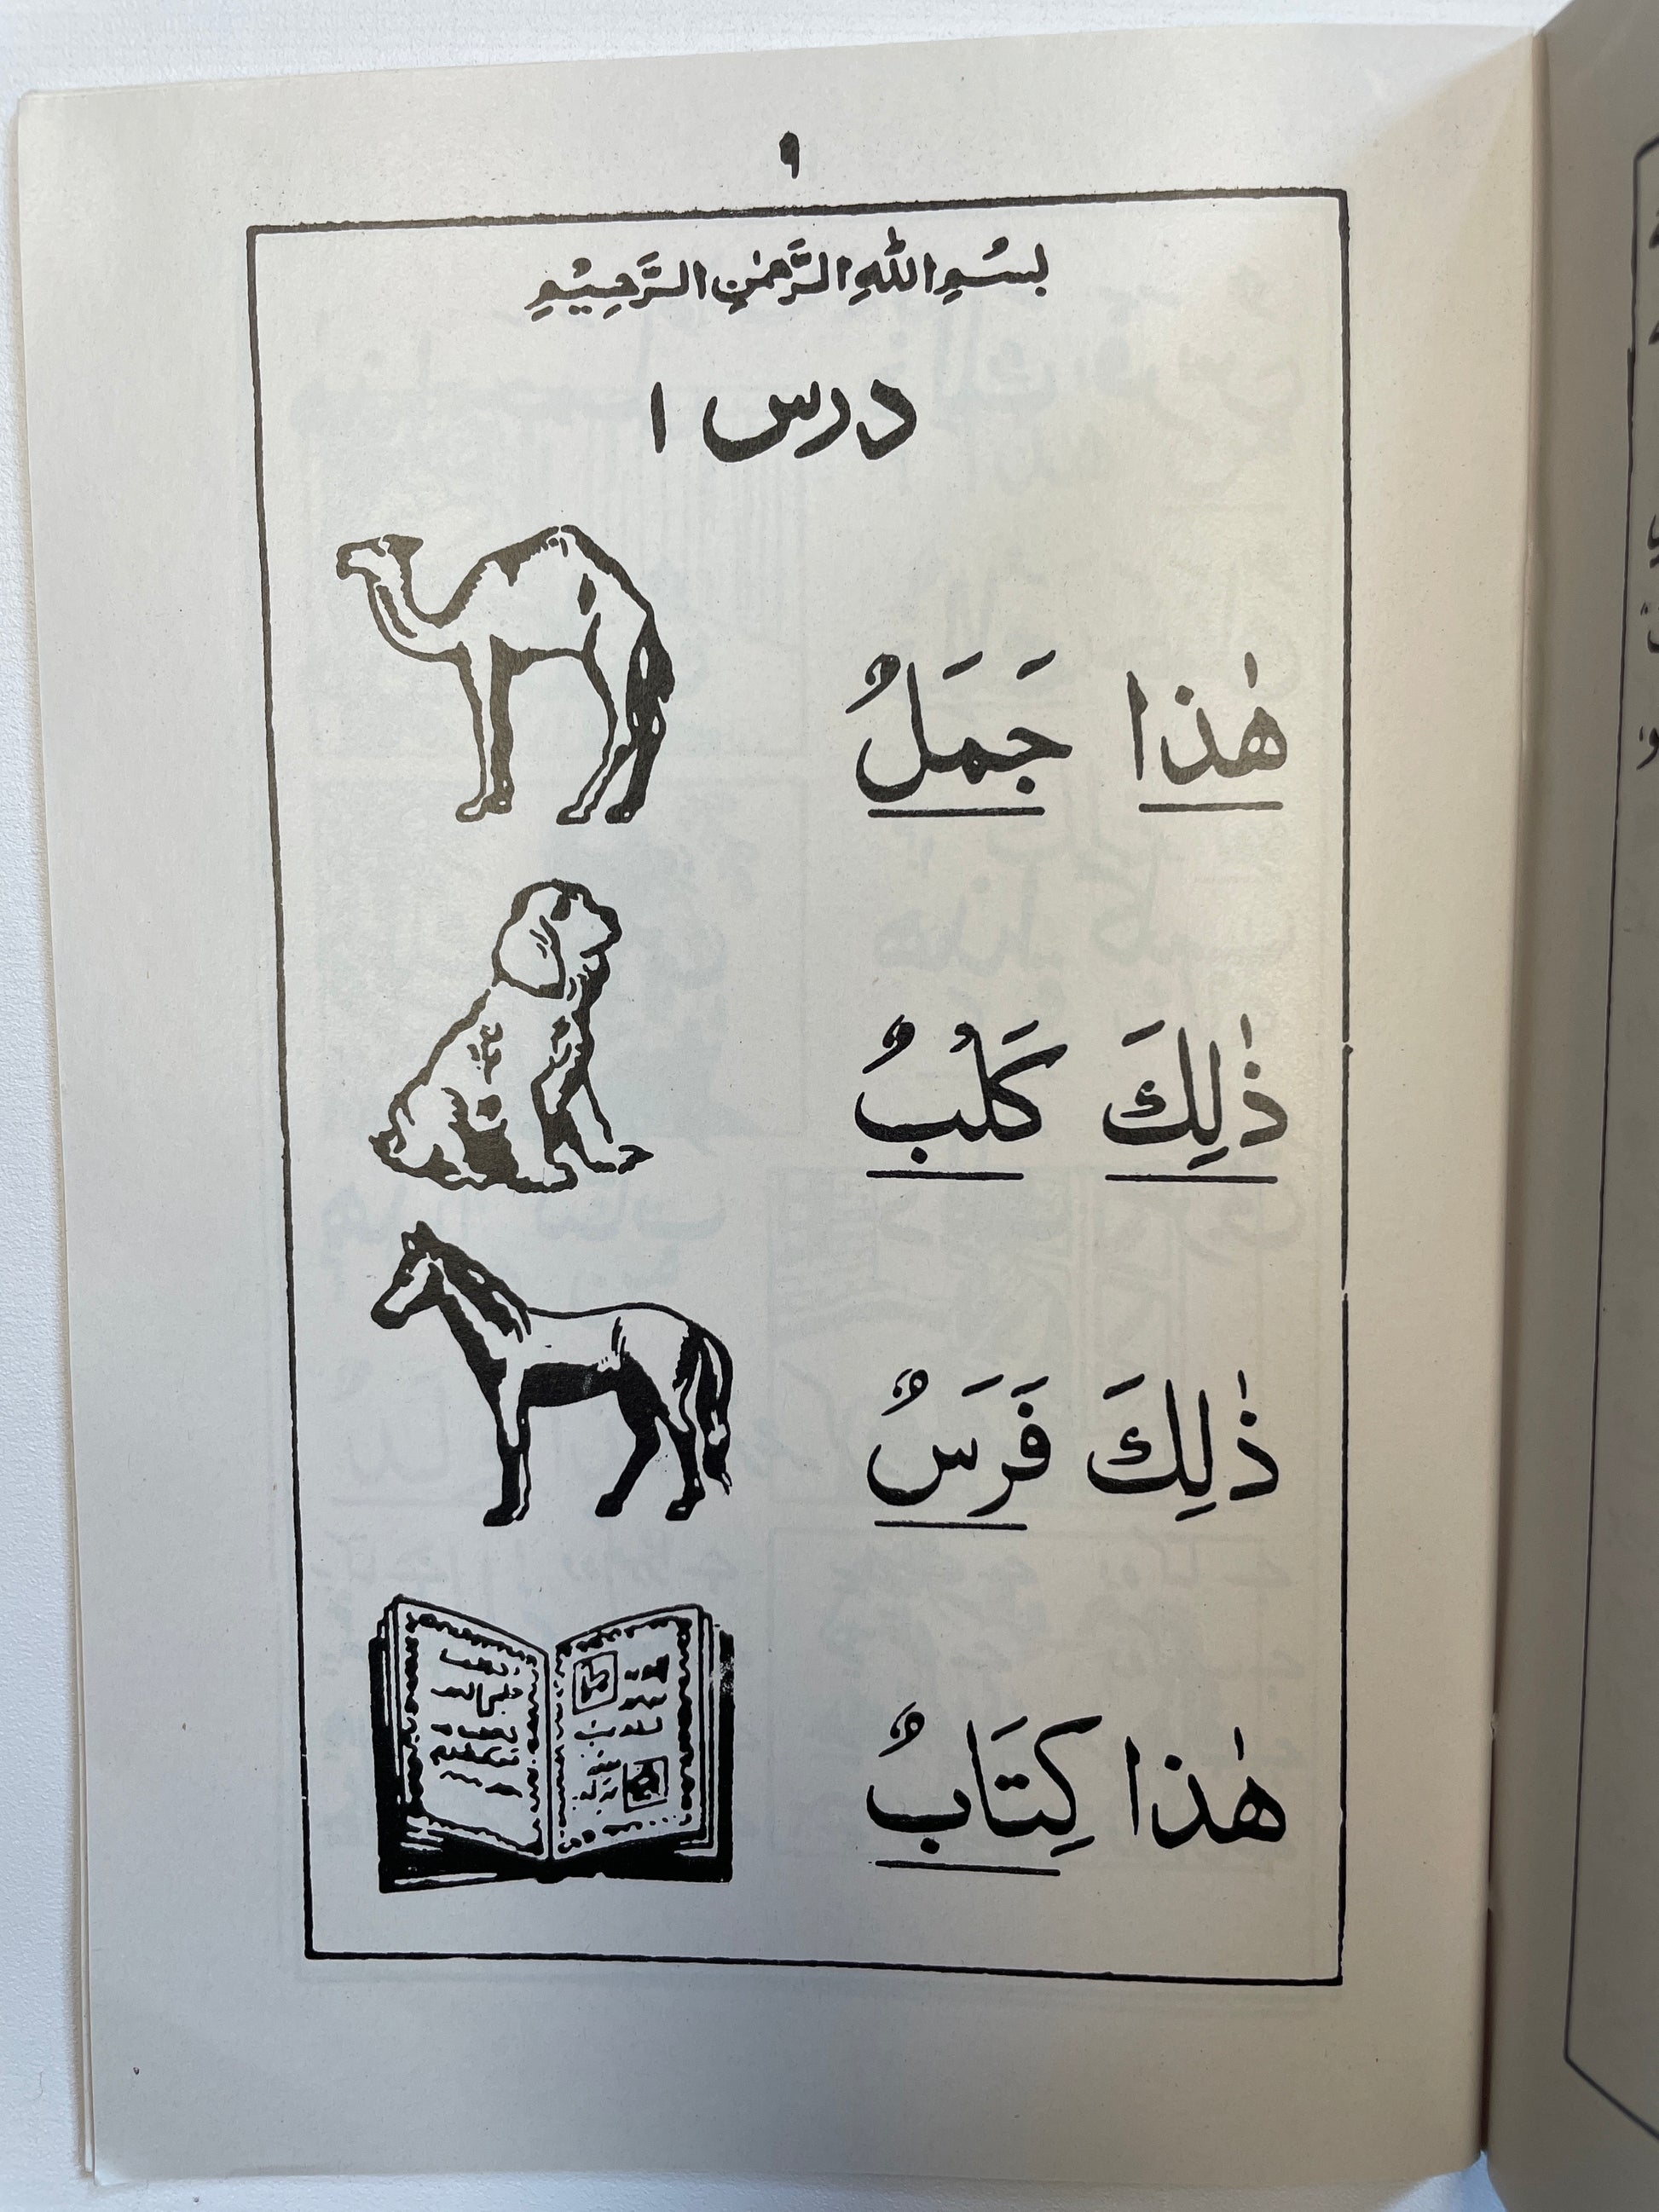 ٩
بِسْمِ اللهِ الرَّحْمٰنِ الرَّحِيْمِ
درس ١
هٰذا جَمَلٌ
ذٰلِكَ كَلْبٌ
ذٰلِكَ فَرَسٌ
هٰذا كِتَابٌ